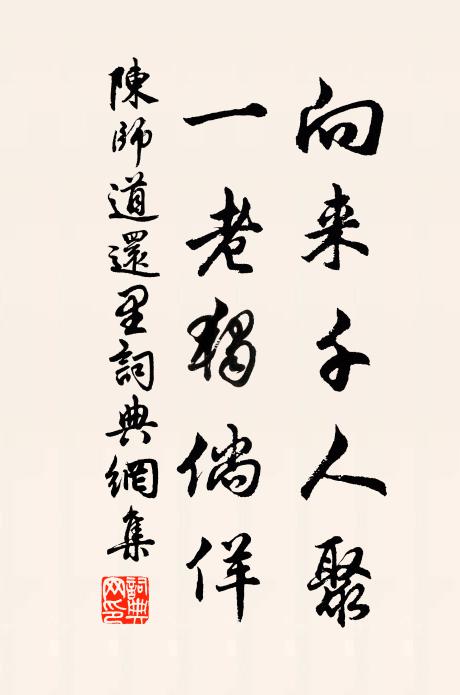 向来千人聚
一老獨倘佯
陳師道還里詞典網集
詞典网印